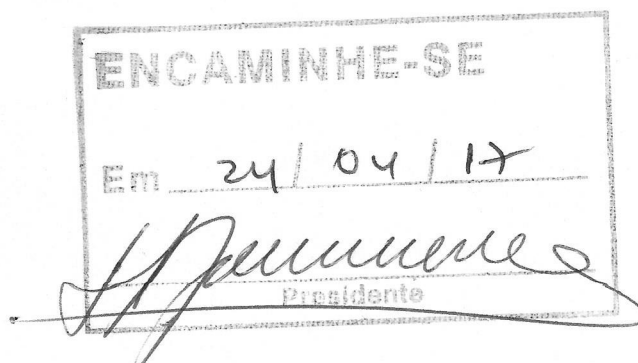 ENCAMINHE-SE
Em 24/04/17
Presidente